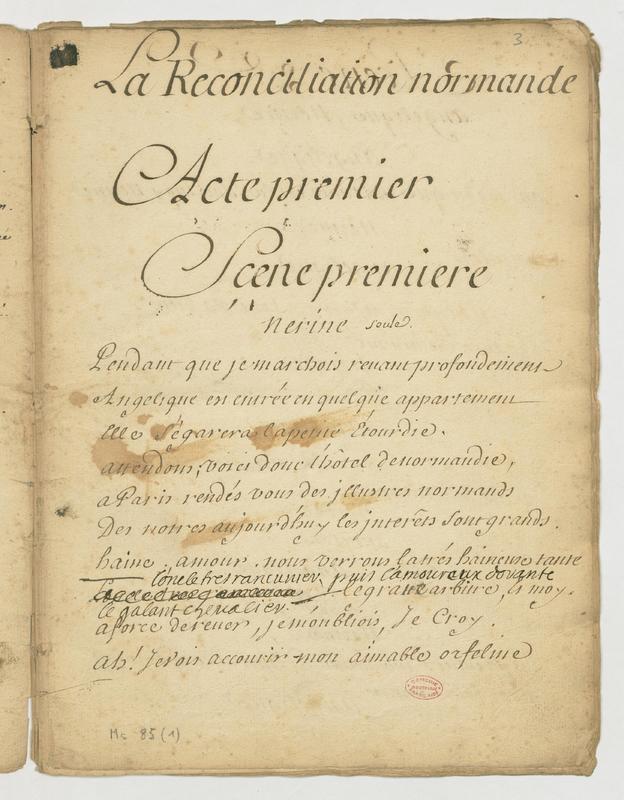 3
La Reconciliation normande
Acte premier
Scene premiere
nerine seule.
Pendant que je marchois revant profondement
Angelique en entrée en quelque appartement
Elle S'égarera la petite Etourdie.
attendons, voici donc l'hôtel de normandie,
a Paris rendés vous des jllustres normands
Des notres aujourd'huy les interêts sont grands.
haine, amour, nous verrons la trés haineuse tante
l'oncle tres rancunier, puis l'amoureux dorante
le grand arbitre, et moy.
le galant chevalier.
a force de rever, je m'oubliois, Je Croy.
ah! Je vois accourir mon aimable orfeline
COMEDIE FRANCAISE
Ms 85 (1)